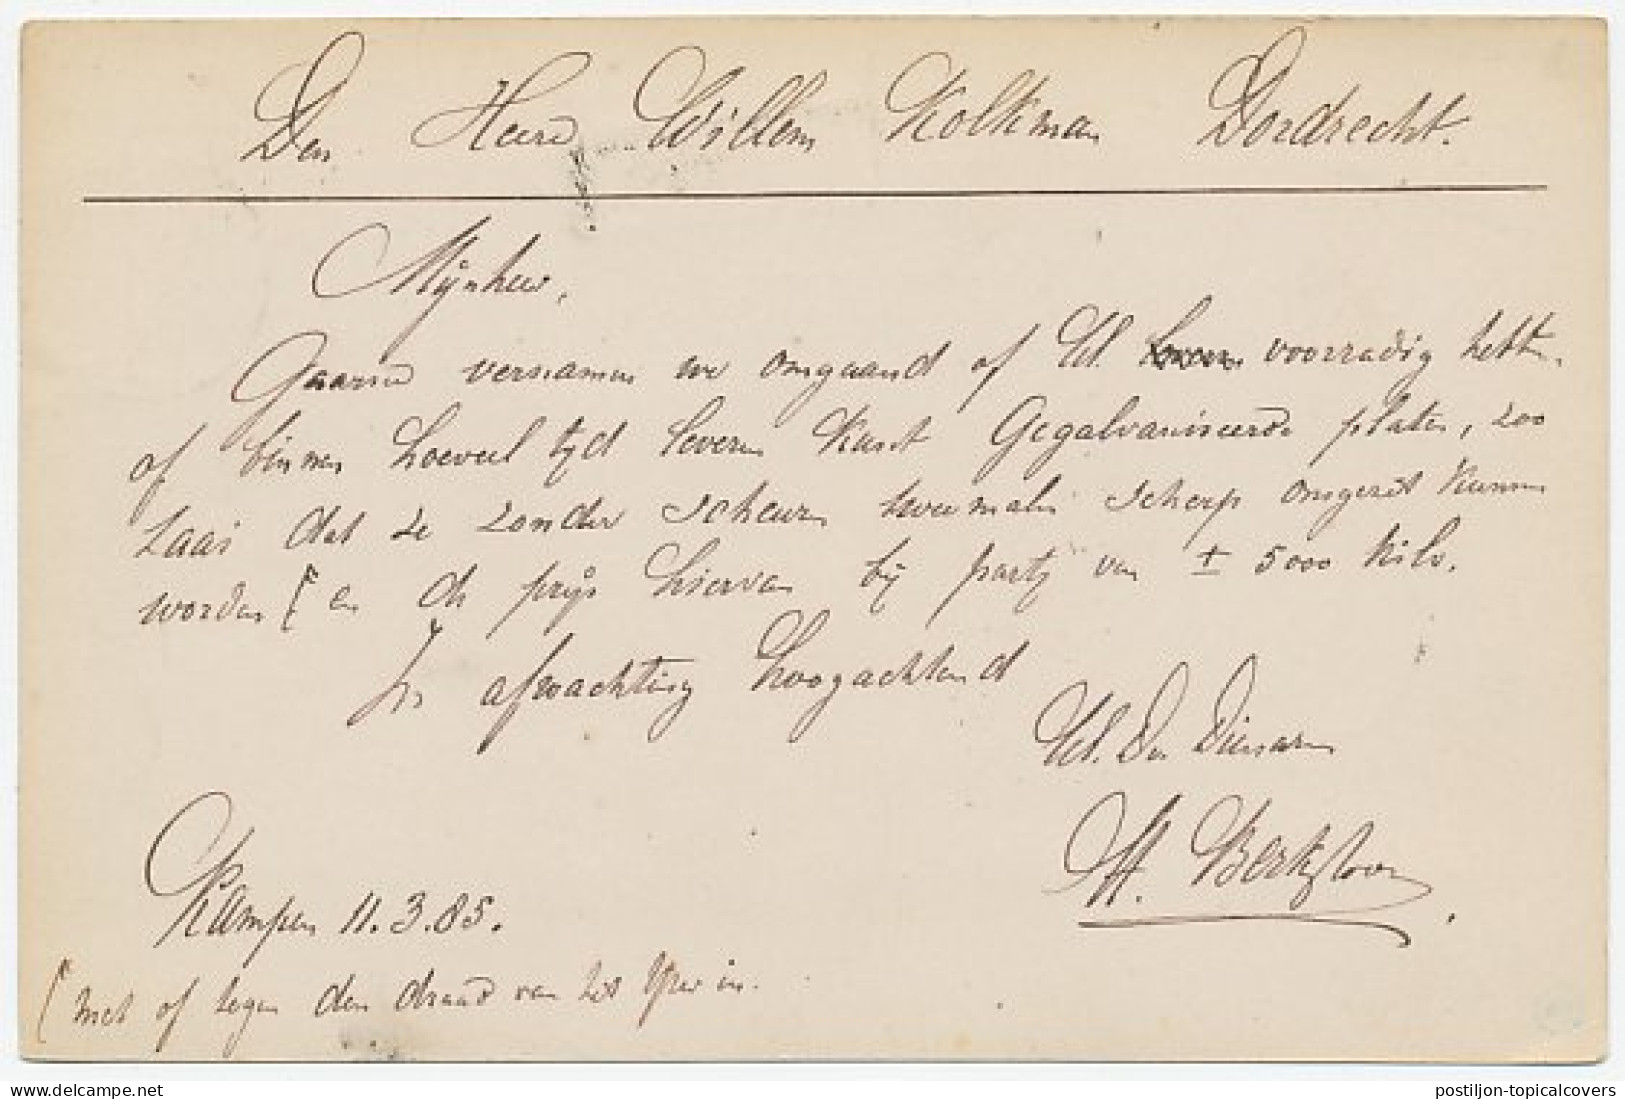 Den Heer Willem Kolkman Dordrecht.
Mijnheer,
Gaarne vernamen we omgaand of UE. voorradig hebt
of binnen hoeveel tijd leveren kunt Gegalvaniseerde platen, zoo
taai dat ze zonder scheuren tweemalen scherp omgezet kunnen
worden [ en de prijs hiervan bij partij van ± 5000 kilo.
In afwachting hoogachtend
UE. Dw Dienaren
H. Berk & Zoon
Kampen 11.3.85.
[ met of tegen den draad van het ijzer in.
postiljon-topicalcovers
www.delcampe.net